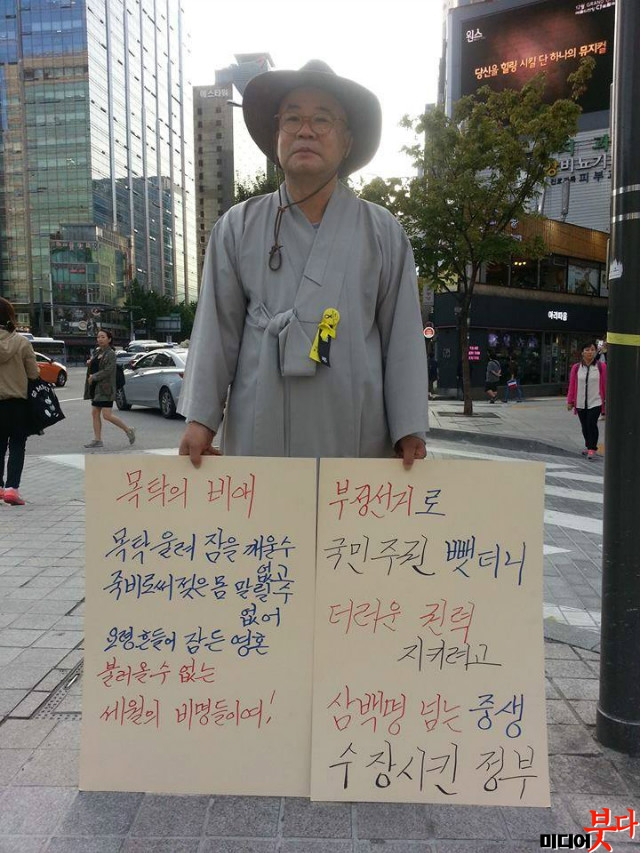 12월
원스
당신을 힐링 시킬 단 하나의 뮤지컬
에스타워
비뇨기
피부
아리따움
목탁의 비애
목탁 울려 잠을 깨울수
없고
죽비로써 젖은 몸 말릴 수
없어
요령흔들어 잠든 영혼
불러올 수 없는
세월의 비명들이여!
부정선거로
국민주권 뺏더니
더러운 권력
지키려고
삼백명 넘는 중생
수장시킨 정부
미디어붓다